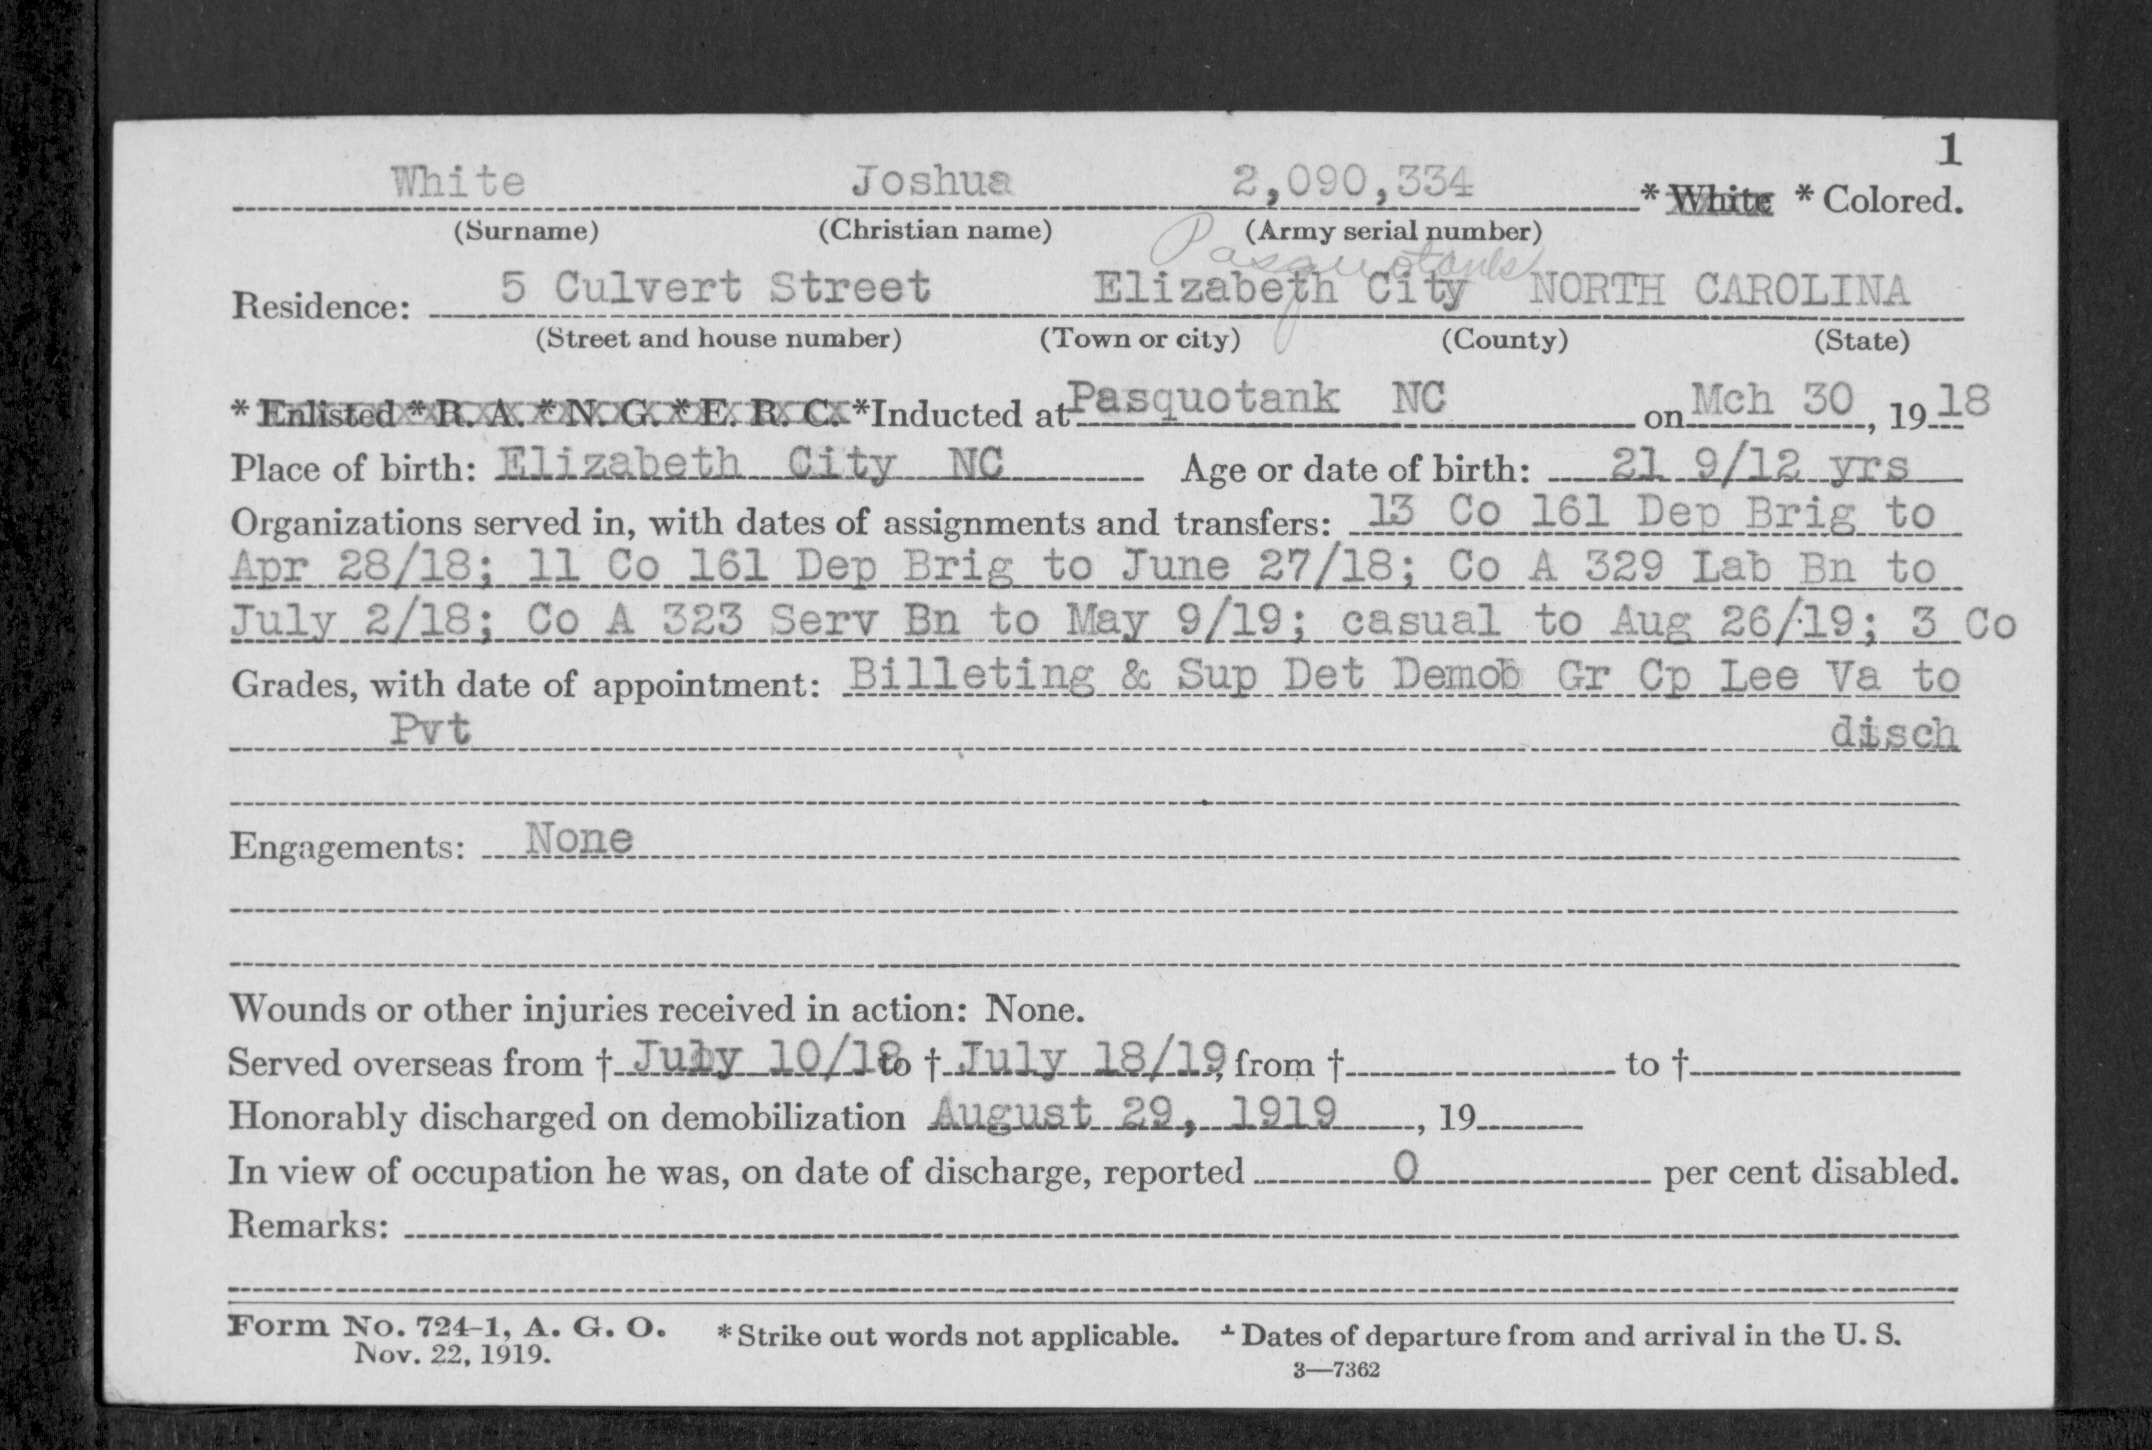 1
White Joshua 2,090,334 * White * Colored.
(Surname) (Christian name) (Army serial number)
Pasquotank
Residence: 5 Culvert Street Elizabeth City NORTH CAROLINA
(Street and house number) (Town or city) (County) (State)
* Enlisted * R. A. * N. G. * E. R. C. *Inducted at Pasquotank NC on Mch 30, 1918
Place of birth: Elizabeth City NC Age or date of birth: 21 9/12 yrs
Organizations served in, with dates of assignments and transfers: 13 Co 161 Dep Brig to
Apr 28/18; 11 Co 161 Dep Brig to June 27/18; Co A 329 Lab Bn to
July 2/18; Co A 323 Serv Bn to May 9/19; casual to Aug 26/19; 3 Co
Grades, with date of appointment: Billeting & Sup Det Demob Gr Cp Lee Va to
Pvt disch
Engagements: None
Wounds or other injuries received in action: None.
Served overseas from † July 10/18 to † July 18/19, from † to †
Honorably discharged on demobilization August 29, 1919, 19
In view of occupation he was, on date of discharge, reported 0 per cent disabled.
Remarks:
Form No. 724-1, A. G. O. * Strike out words not applicable. † Dates of departure from and arrival in the U. S.
Nov. 22, 1919.
3—7362